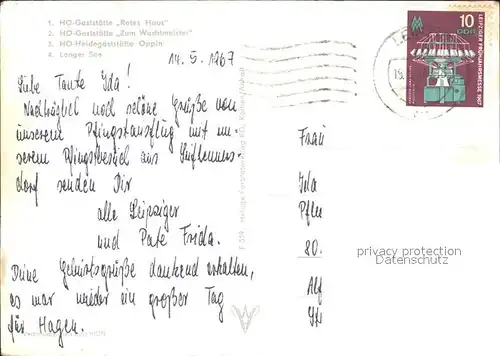 1. HO-Gaststätte „Rotes Haus"
2. HO-Gaststätte „Zum Wachtmeister"
3. HO-Heidegaststätte Oppin
4. Langer See
14. 5. 1967
Liebe Tante Ida!
Nachträglich noch schöne Grüße von
unserem Pfingstausflug mit un-
serem Pfingstbesuch aus Seifhenners-
dorf senden Dir
alle Leipziger
und Pate Frida.
Deine Geburtsgrüße dankend erhalten,
es war wieder ein großer Tag
für Hagen.
10
DDR
LEIPZIGER FRÜHJAHRSMESSE 1967
Frau
Ida
80
privacy protection
Datenschutz